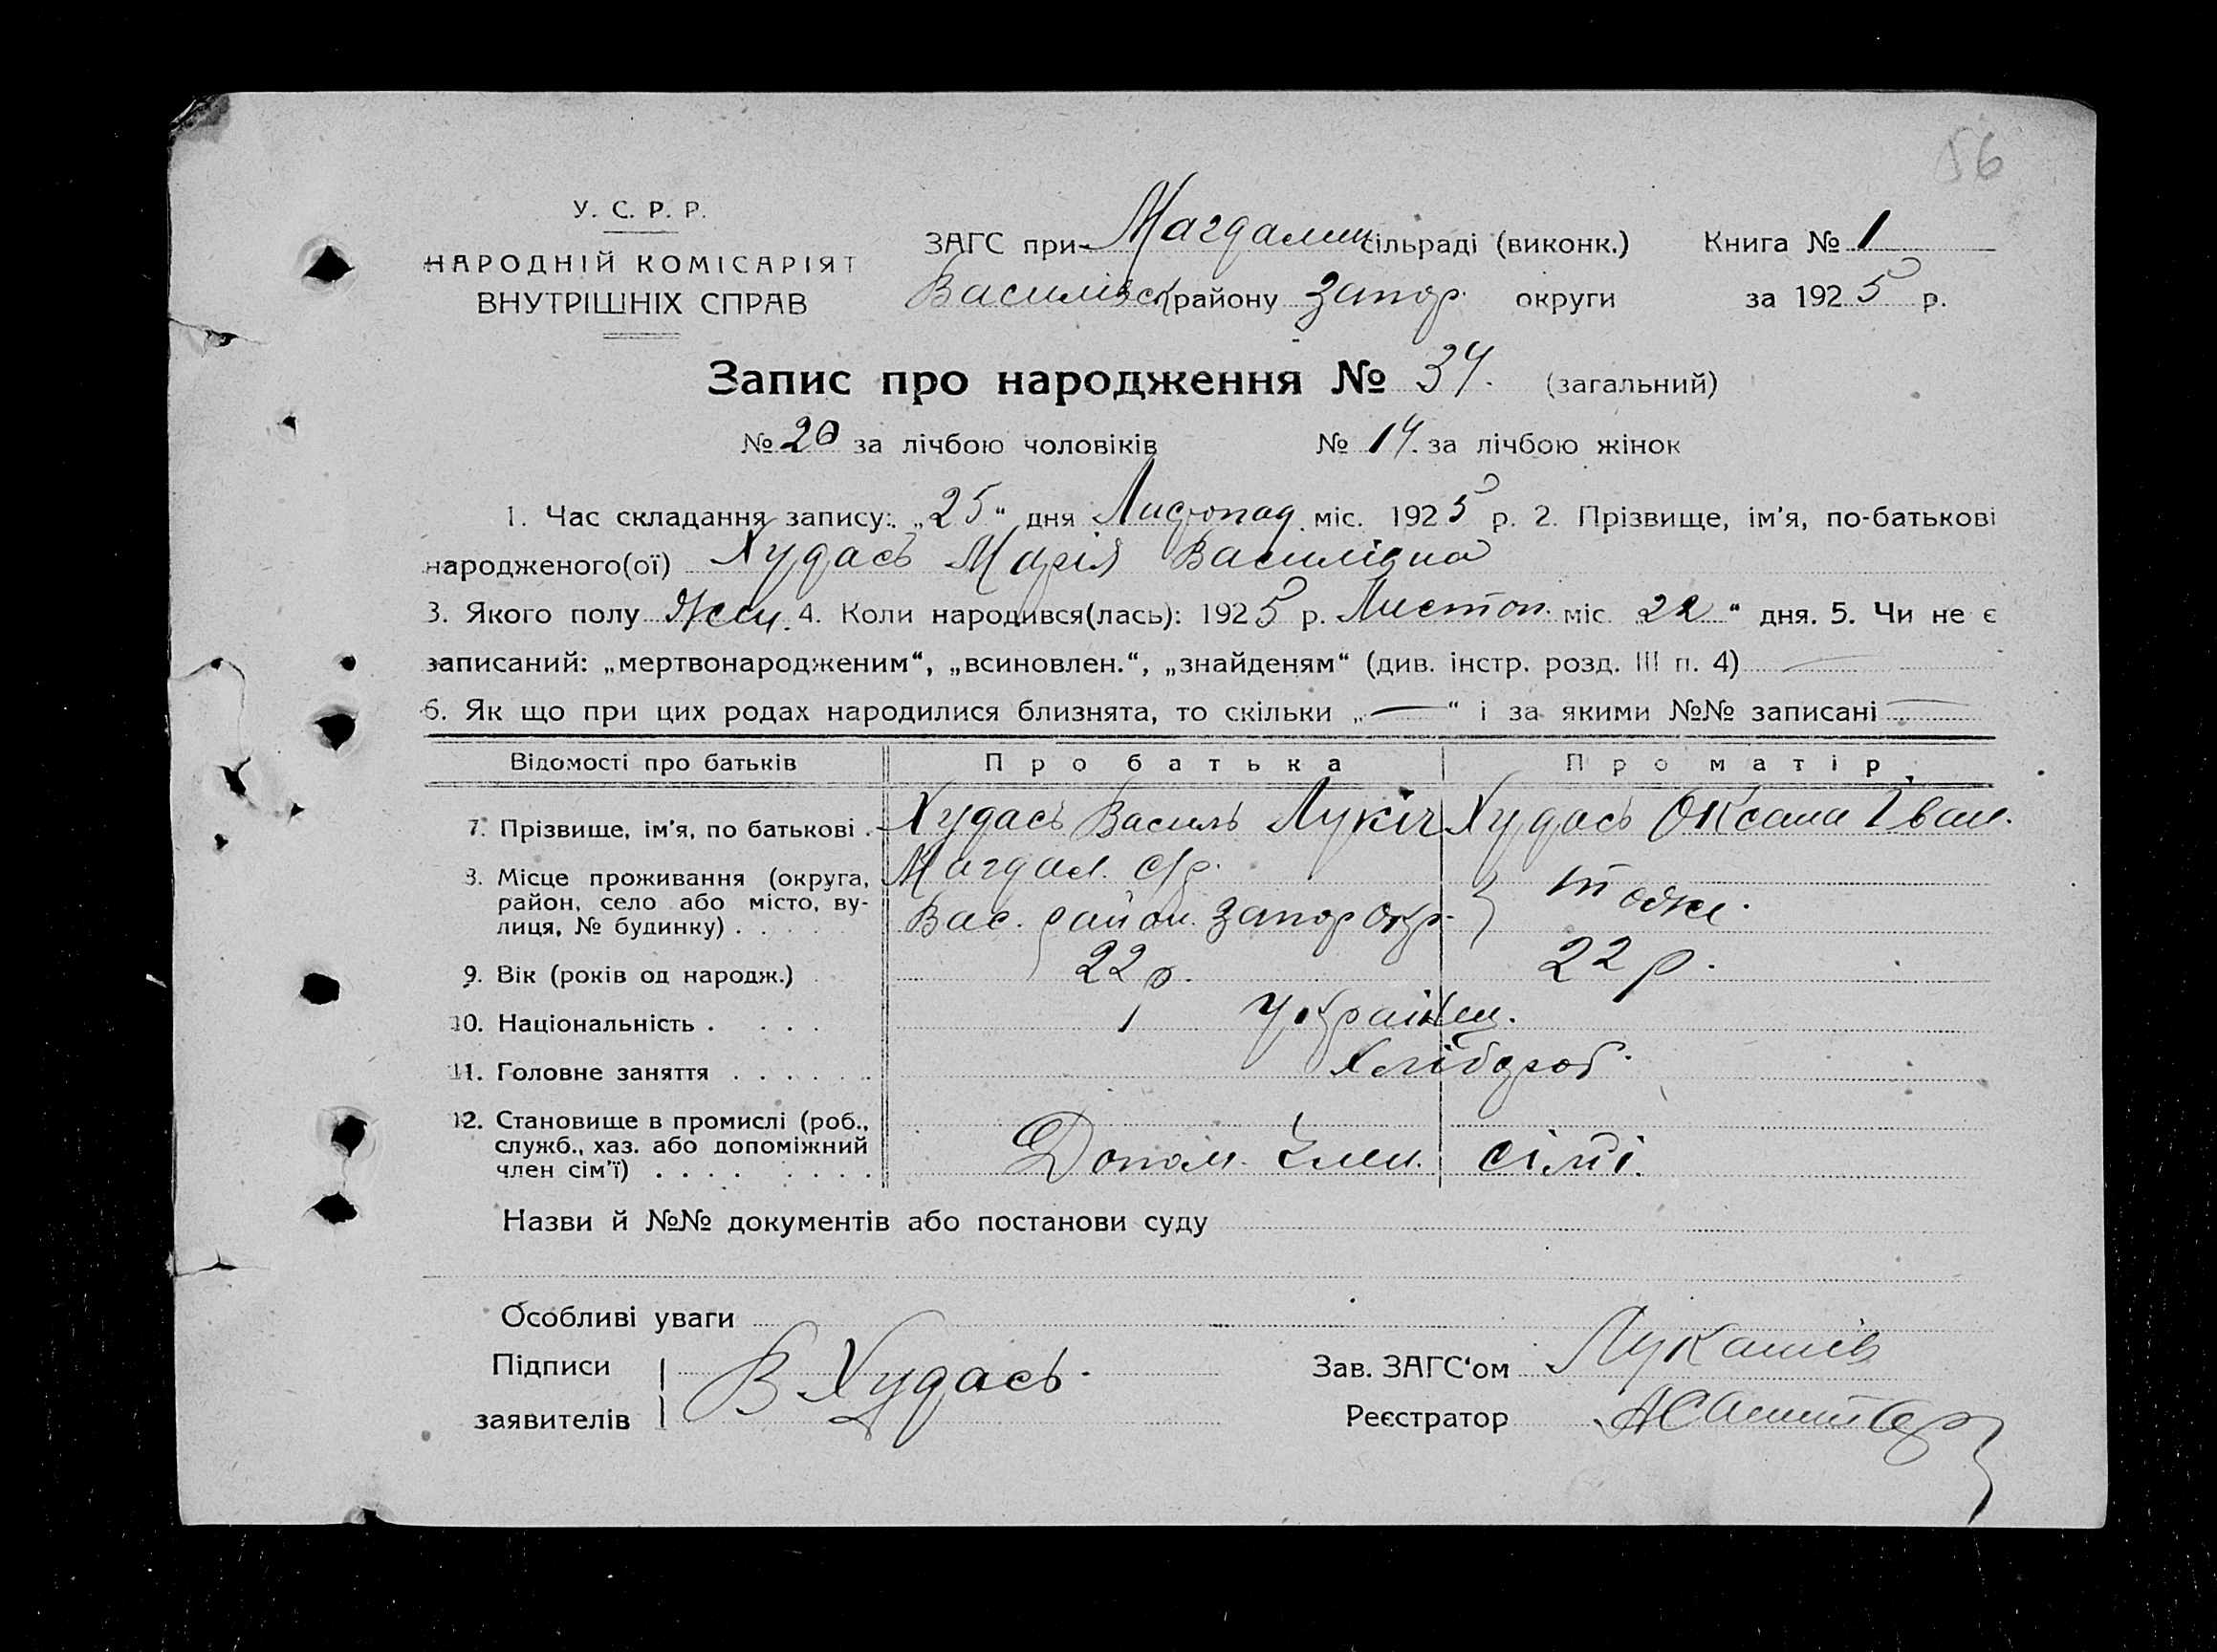 56
У. С. Р. Р.
НАРОДНІЙ КОМІСАРІЯТ
ВНУТРІШНІХ СПРАВ
ЗАГС при Магдалин сільраді (виконк.) Книга № 1
Василівск району Запор. округи за 1925 р.
Запис про народження № 34. (загальний)
№ 20 за лічбою чоловіків № 14. за лічбою жінок
1. Час складання запису: „25“ дня Листопад. міс. 1925 р. 2. Прізвище, ім'я, по-батькові
народженого(ої) Худась Марія Василівна
3. Якого полу Жін. 4. Коли народився(лась): 1925 р. Листоп. міс. 22“ дня. 5. Чи не є
записаний: „мертвонародженим“, „всиновлен.“, „знайденям“ (див. інстр. розд. III п. 4) —
6. Як що при цих родах народилися близнята, то скільки „—“ і за якими №№ записані —
Відомості про батьків Про батька Про матір
7. Прізвище, ім'я, по батькові . Худась Василь Лукіч Худась Оксана Іван.
8. Місце проживання (округа, район, село або місто, ву-лиця, № будинку) . Магдал. с/р.
Вас. район. Запор окр. тоже.
9. Вік (років од народж.) 22 р. 22 р.
10. Національність . . . . Українц.
11. Головне заняття . . . . . . Хлібороб.
12. Становище в промислі (роб.,
служб., хаз. або допоміжний
член сім'ї) . . . . . . . . Допом. Член. сімї.
Назви й №№ документів або постанови суду
Особливі уваги
Підписи
заявителів В Худась.
Зав. ЗАГС'ом Лукашів
Реєстратор